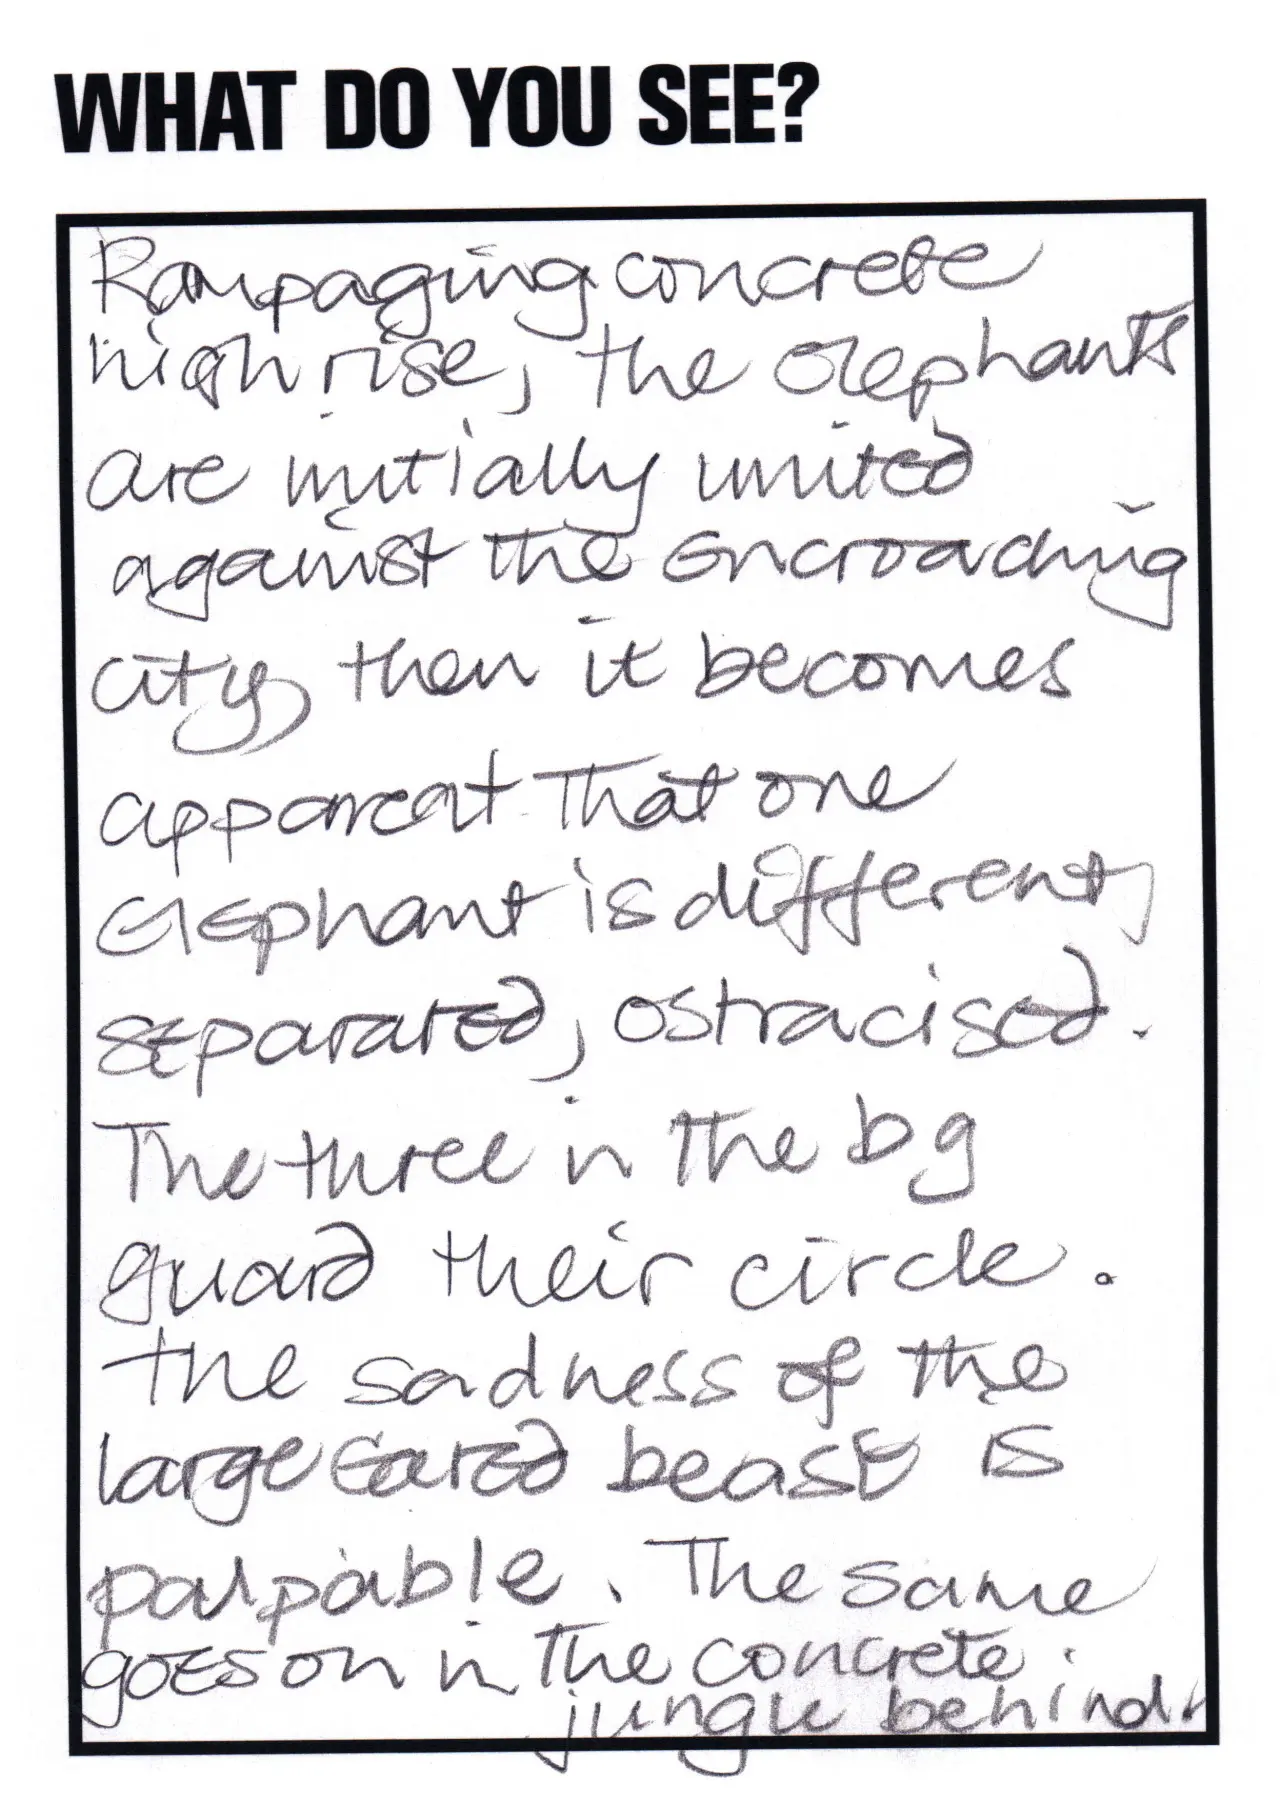 WHAT DO YOU SEE?
Rampaging concrete
high rise, the elephants
are initially united
against the encroaching
city, then it becomes
apparent that one
elephant is different,
separated, ostracised.
The three in the bg
guard their circle.
the sadness of the
large eared beast is
palpable. The same
goes on in the concrete
jungle behind.